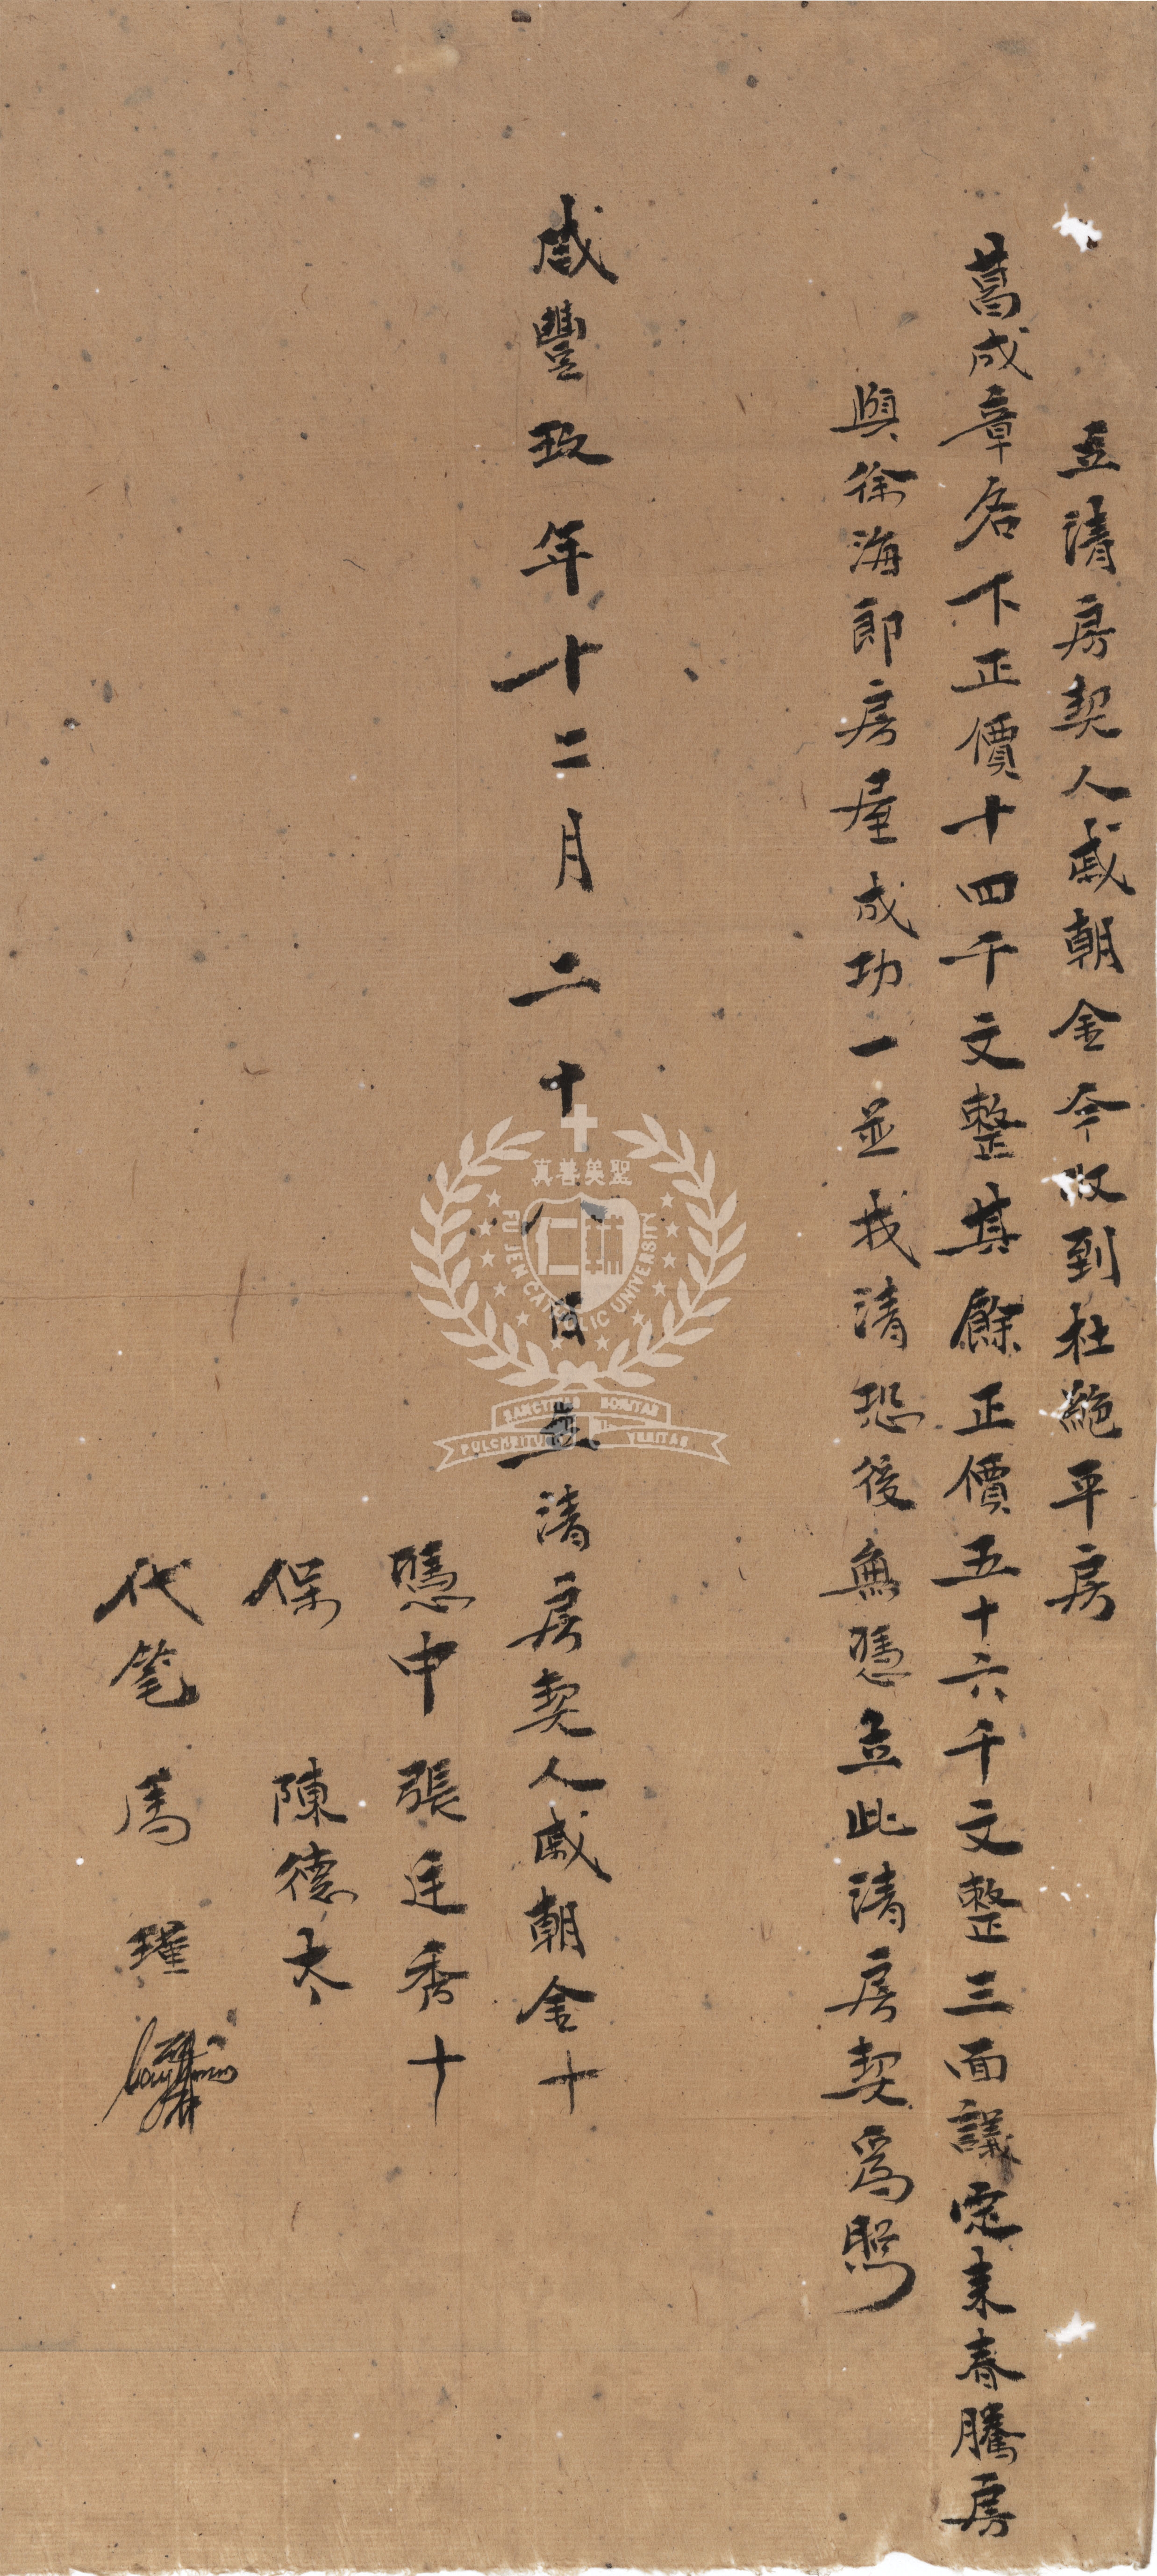 立清房契人戚朝金今收到杜絕平房
葛成章名下正價十四千文整其餘正價五十六千文整三面議定來春騰房
與徐海郎房屋成功一並找清恐後無憑立此清房契爲照
咸豐玖年十二月二十八日立清房契人戚朝金十
憑中張廷秀十
保 陳德太
代笔 馬 瑾
真善美聖
FU JEN CATHOLIC UNIVERSITY
SANCTITAS BONITAS
PULCHRITUDO VERITAS